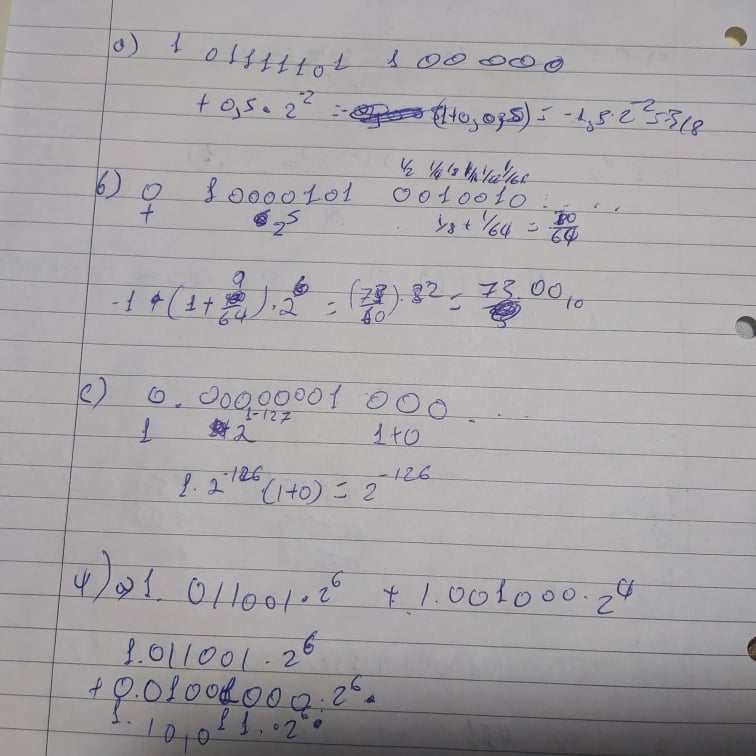 a) 1 01111101 100000
+ 0,5 · 2^-2 = (1+0,0,5) = -1,5·2^-2=-3/8
b) 0 10000101 0010010.....
+ 2^5 1/8 + 1/64 = /64
-1 + (1 + 9/64) · 2^6 = (73/60) · 32 = 73.00₁₀
c) 0. 00000001 000.....
1 2^1-127 1+0
1. 2^-126 (1+0) = 2^-126
4) a) 1. 011001 · 2^6 + 1.001000 · 2^4
1.011001 · 2^6
+ 0.01001000 · 2^6
1.101011 · 2^6